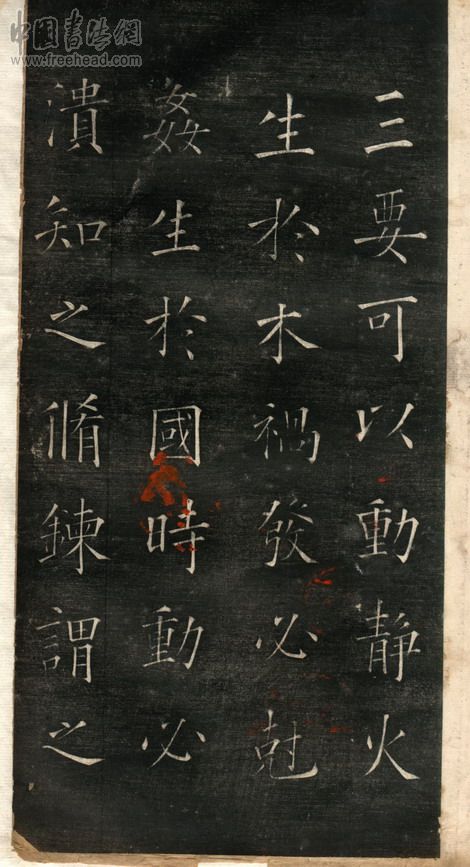 三要可以動静火
生於木禍發必尅
姦生於國時動必
潰知之脩鍊謂之
中国書法網
www.freehead.com